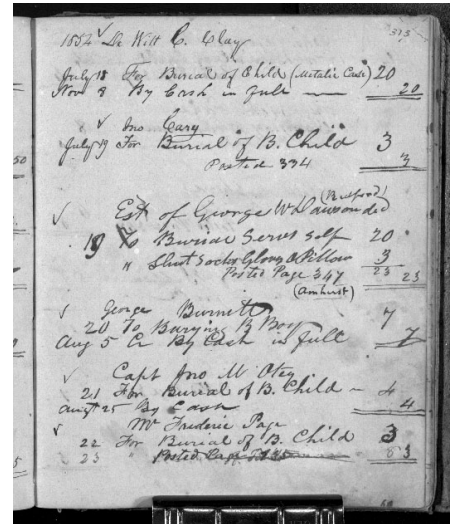 315
1854 De Witt C. Clay
July 18 For Burial of Child (Metalic Case) 20
Nov 8 By Cash in full 20
Jno Cary
July 19 For Burial of B. Child 3
Posted 334 3
Est of George W Dawson ded (Bedford)
19 To Burial Servs self 20
" Shirt Socks Gloves & Pillow 3
Posted Page 347 23 23
(Amherst)
George Burnett
20 To Burying B Boy 7
Aug 5 Cr By Cash in full 7
Capt Jno M Otey
21 For Burial of B. Child 4
August 25 By Cash 4
Mr Frederic Page
22 For Burial of B. Child 3
23 " Posted 3
50
5